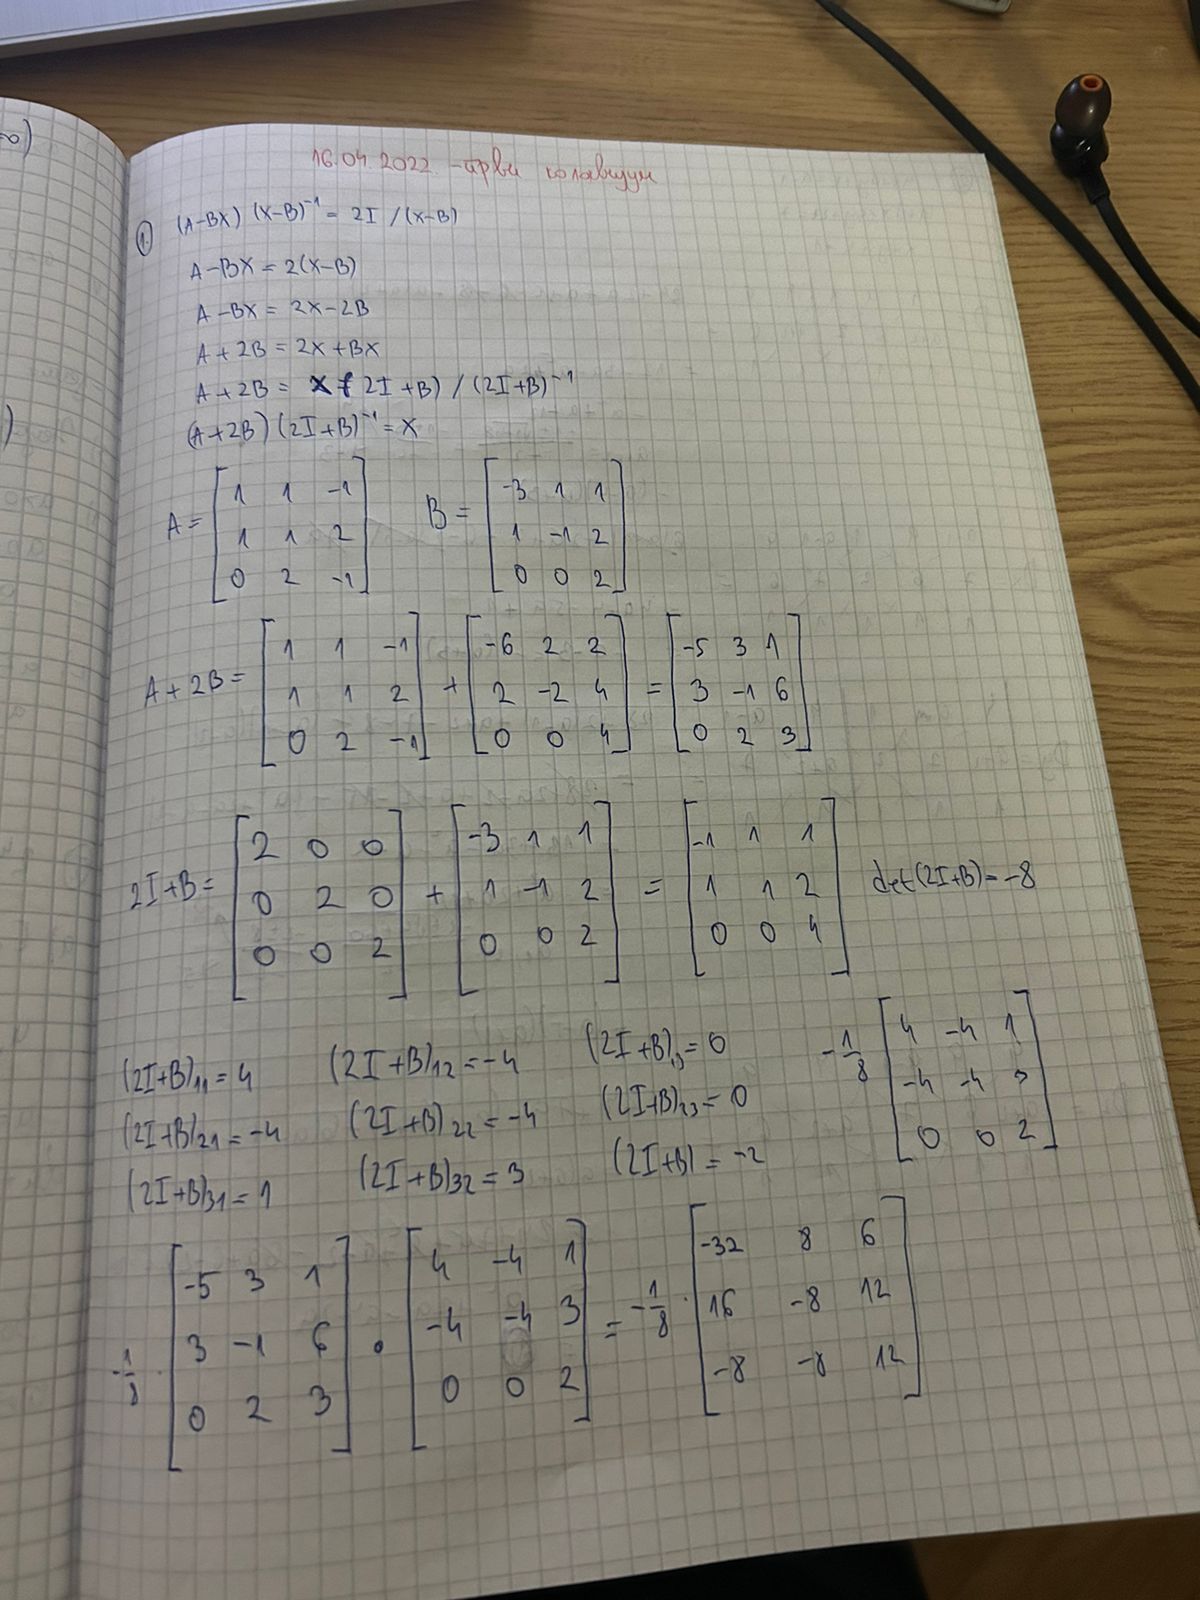 ∞)
16.04.2022. -први колавијум
1. (A-BX) (X-B)⁻¹ = 2I /(X-B)
A-BX = 2(X-B)
A-BX = 2X-2B
A+2B = 2X+BX
A+2B = X (2I+B) / (2I+B)⁻¹
(A+2B) (2I+B)⁻¹ = X
A = [1 1 -1; 1 1 2; 0 2 -1] B = [-3 1 1; 1 -1 2; 0 0 2]
A+2B = [1 1 -1; 1 1 2; 0 2 -1] + [-6 2 2; 2 -2 4; 0 0 4] = [-5 3 1; 3 -1 6; 0 2 3]
2I+B = [2 0 0; 0 2 0; 0 0 2] + [-3 1 1; 1 -1 2; 0 0 2] = [-1 1 1; 1 1 2; 0 0 4] det(2I+B) = -8
(2I+B)₁₁ = 4 (2I+B)₁₂ = -4 (2I+B)₁₃ = 0
(2I+B)₂₁ = -4 (2I+B)₂₂ = -4 (2I+B)₂₃ = 0
(2I+B)₃₁ = 1 (2I+B)₃₂ = 3 (2I+B) = -2
-1/8 [4 -4 1; -4 -4 3; 0 0 2]
-1/8 · [-5 3 1; 3 -1 6; 0 2 3] · [4 -4 1; -4 -4 3; 0 0 2] = -1/8 · [-32 8 6; 16 -8 12; -8 -8 12]